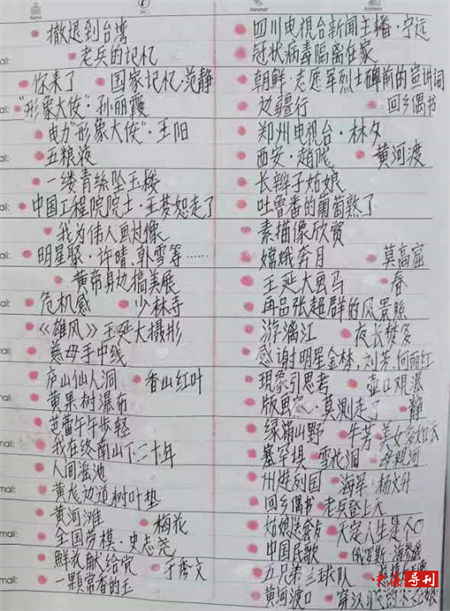 撤退到台湾
老兵的记忆
你来了 国家记忆·范静
"形象大使"·孙丽霞
电力"形象大使"·王阳
五粮液
一缕青丝坠玉楼
中国工程院院士·王梦恕走了
我为伟人画过像
明星聚·许晴,郭雪等……
黄帝身边搞美展
危机感 少林寺
《雄风》王延大摄影
慈母手中线
庐山仙人洞 香山红叶
黄果树瀑布
芭蕾午午步轻
我在终南山下二十年
人间瑶池
黄龙边道树叶垫
黄河滩 梅花
全国劳模·史志尧
鲜花献给党 于秀文
一颗常香的玉
四川电视台新闻主播·宁远
冠状病毒隔离在家
朝鲜·志愿军烈士碑前的宣讲词
边疆行 回乡偶书
郑州电视台·林夕
西安·赵院 黄河渡
长辫子姑娘
吐鲁番的葡萄熟了
素描像欣赏
嫦娥奔月 莫高窟
王延大画马 春
再品张超群的风景照
游漓江 夜长梦多
感谢明星金梦,刘芳,何丽红
现象引思考 壶口观瀑
版画家·莫测走了 静
绿满山野 牛芳
塞罕坝 雪花洞
州娃到国 海军·杨文升
回乡偶书 老兵登上天
姑娘 天定人生是个〇
中国民歌 俄罗斯·海参崴
五兄弟三球队
黄河渡口
大海导刊